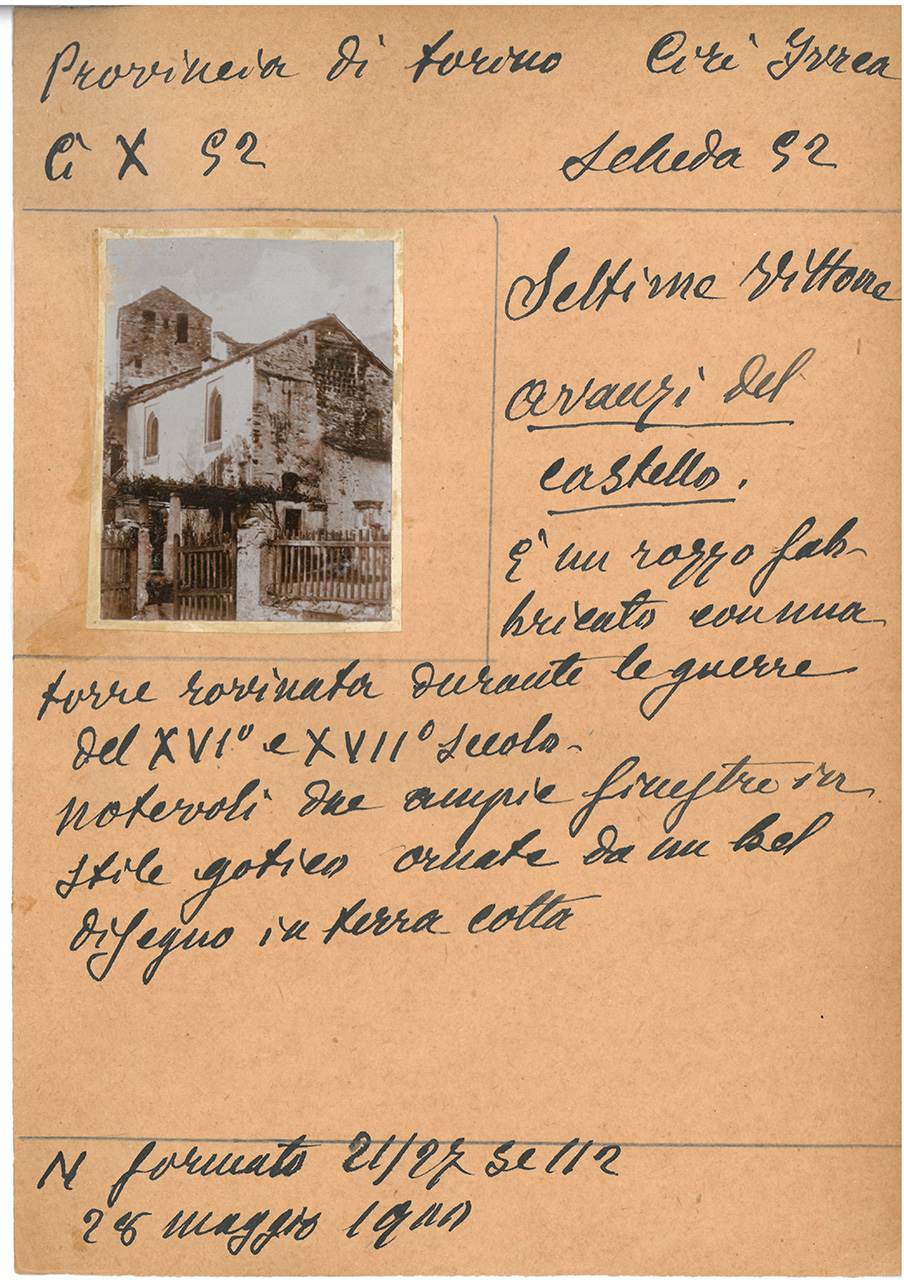 Provincia di Torino Cirè Yvrea
Ci X 92
Scheda 92
Settimo Vittone
avanzi del
castello.
È un rozzo fab-
bricato con una
torre rovinata durante le guerre
del XVI° e XVII° secolo-
notevoli due ampie finestre in
stile gotico ornate da un bel
disegno in terra cotta
N formato 21/27 se 112
28 maggio 1900